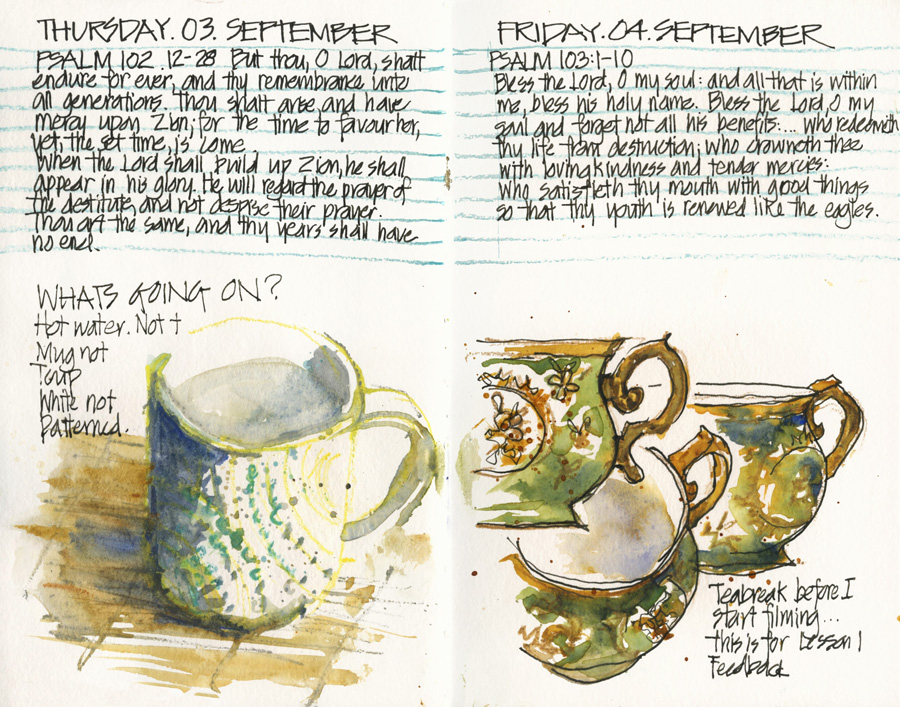 THURSDAY. 03. SEPTEMBER
PSALM 102 .12-28 But thou, O Lord, shalt
endure for ever, and thy remembrance unto
all generations. Thou shalt arise, and have
mercy upon Zion; for the time to favour her,
yet, the set time, is come.
When the Lord shall build up Zion, he shall
appear in his glory. He will regard the prayer of
the destitute, and not despise their prayer.
Thou art the same, and thy years shall have
no end.
WHATS GOING ON?
Hot water. Not t
Mug not
Tcup
White not
Patterned.
FRIDAY. 04. SEPTEMBER
PSALM 103:1-10
Bless the Lord, O my soul: and all that is within
me, bless his holy name. Bless the Lord, O my
soul and forget not all his benefits:... who redeemeth
thy life from destruction; who crowneth thee
with lovingkindness and tender mercies:
Who satisfieth thy mouth with good things
so that thy youth is renewed like the eagles.
Teabreak before I
start filming...
this is for Lesson 1
Feedback